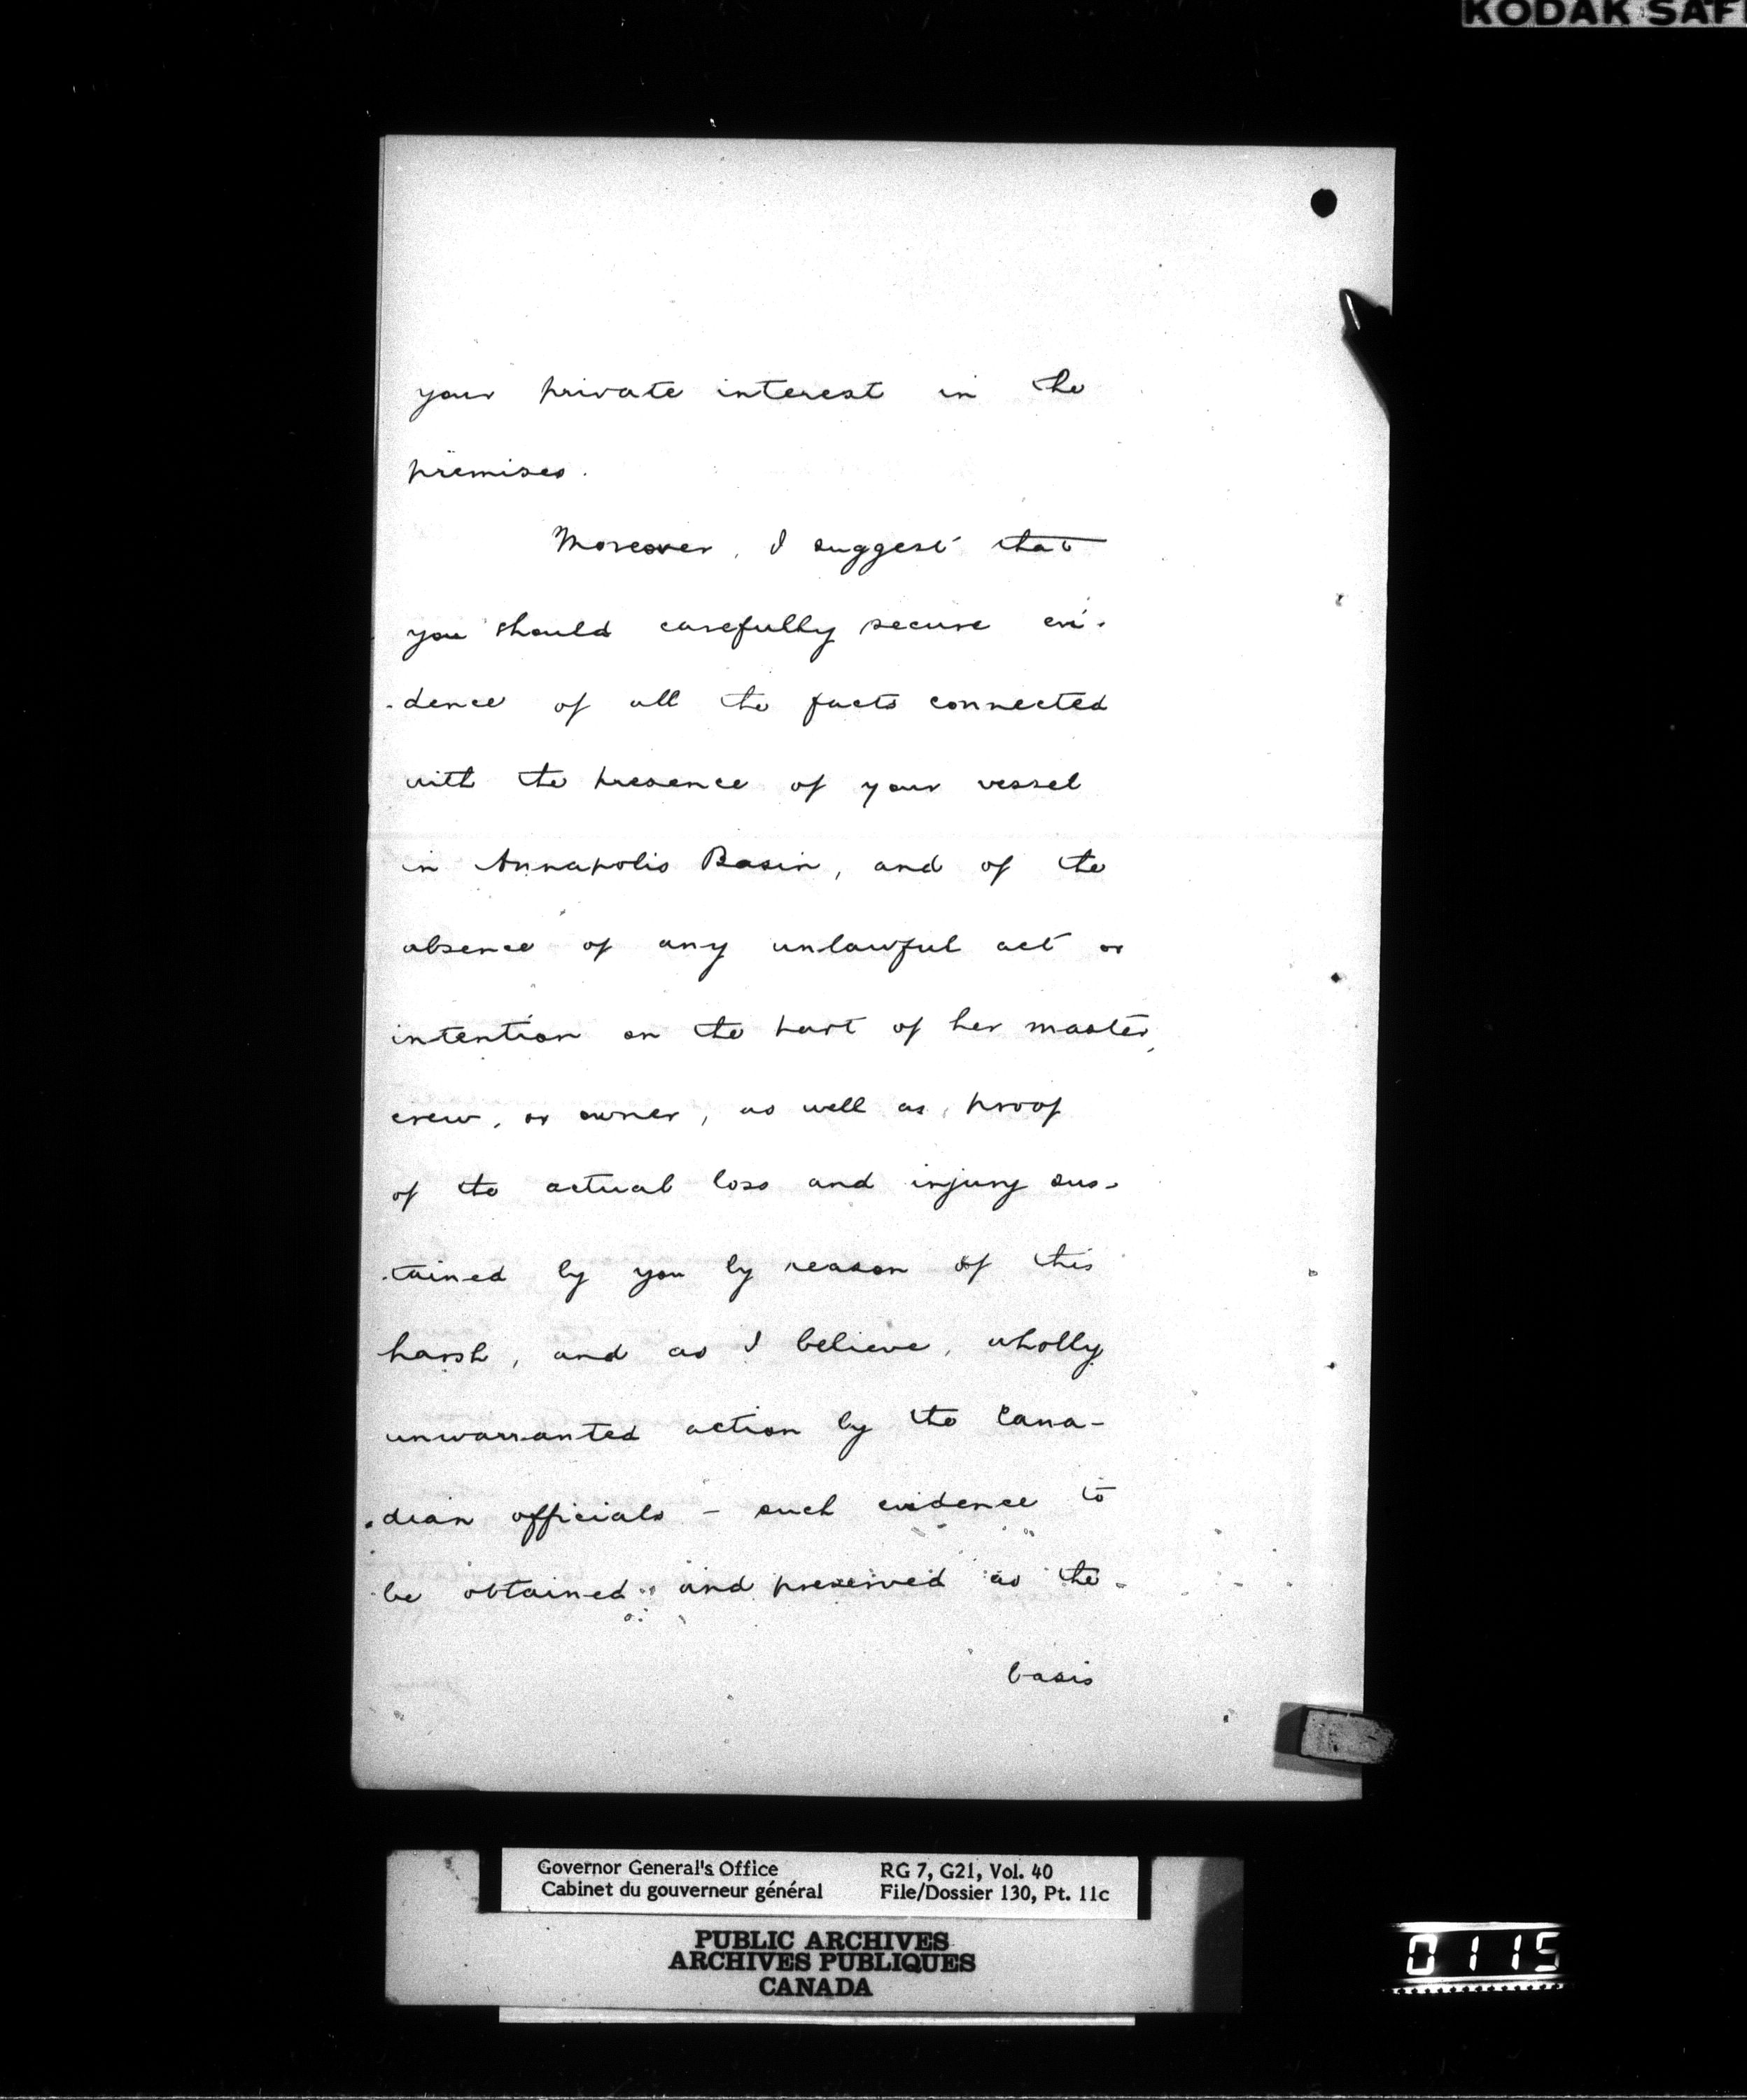 KODAK SAF
your private interest in the
premises.
Moreover, I suggest that
you should carefully secure evi-
-dence of all the facts connected
with the presence of your vessel
in Annapolis Basin, and of the
absence of any unlawful act or
intention on the part of her master,
crew, or owner, as well as, proof
of the actual loss and injury sus-
-tained by you by reason of this
harsh, and as I believe, wholly
unwarranted action by the Cana-
-dian officials - such evidence to
be obtained and preserved as the
basis
Governor General's Office RG 7, G21, Vol. 40
Cabinet du gouverneur général File/Dossier 130, Pt. 11c
PUBLIC ARCHIVES
ARCHIVES PUBLIQUES
CANADA
0115